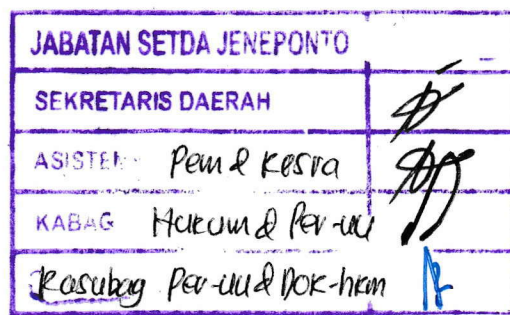 JABATAN SETDA JENEPONTO
SEKRETARIS DAERAH
ASISTEN Pem & Kesra
KABAG Hukum & Per-uu
Kasubag Per-uu & Dok-hkm